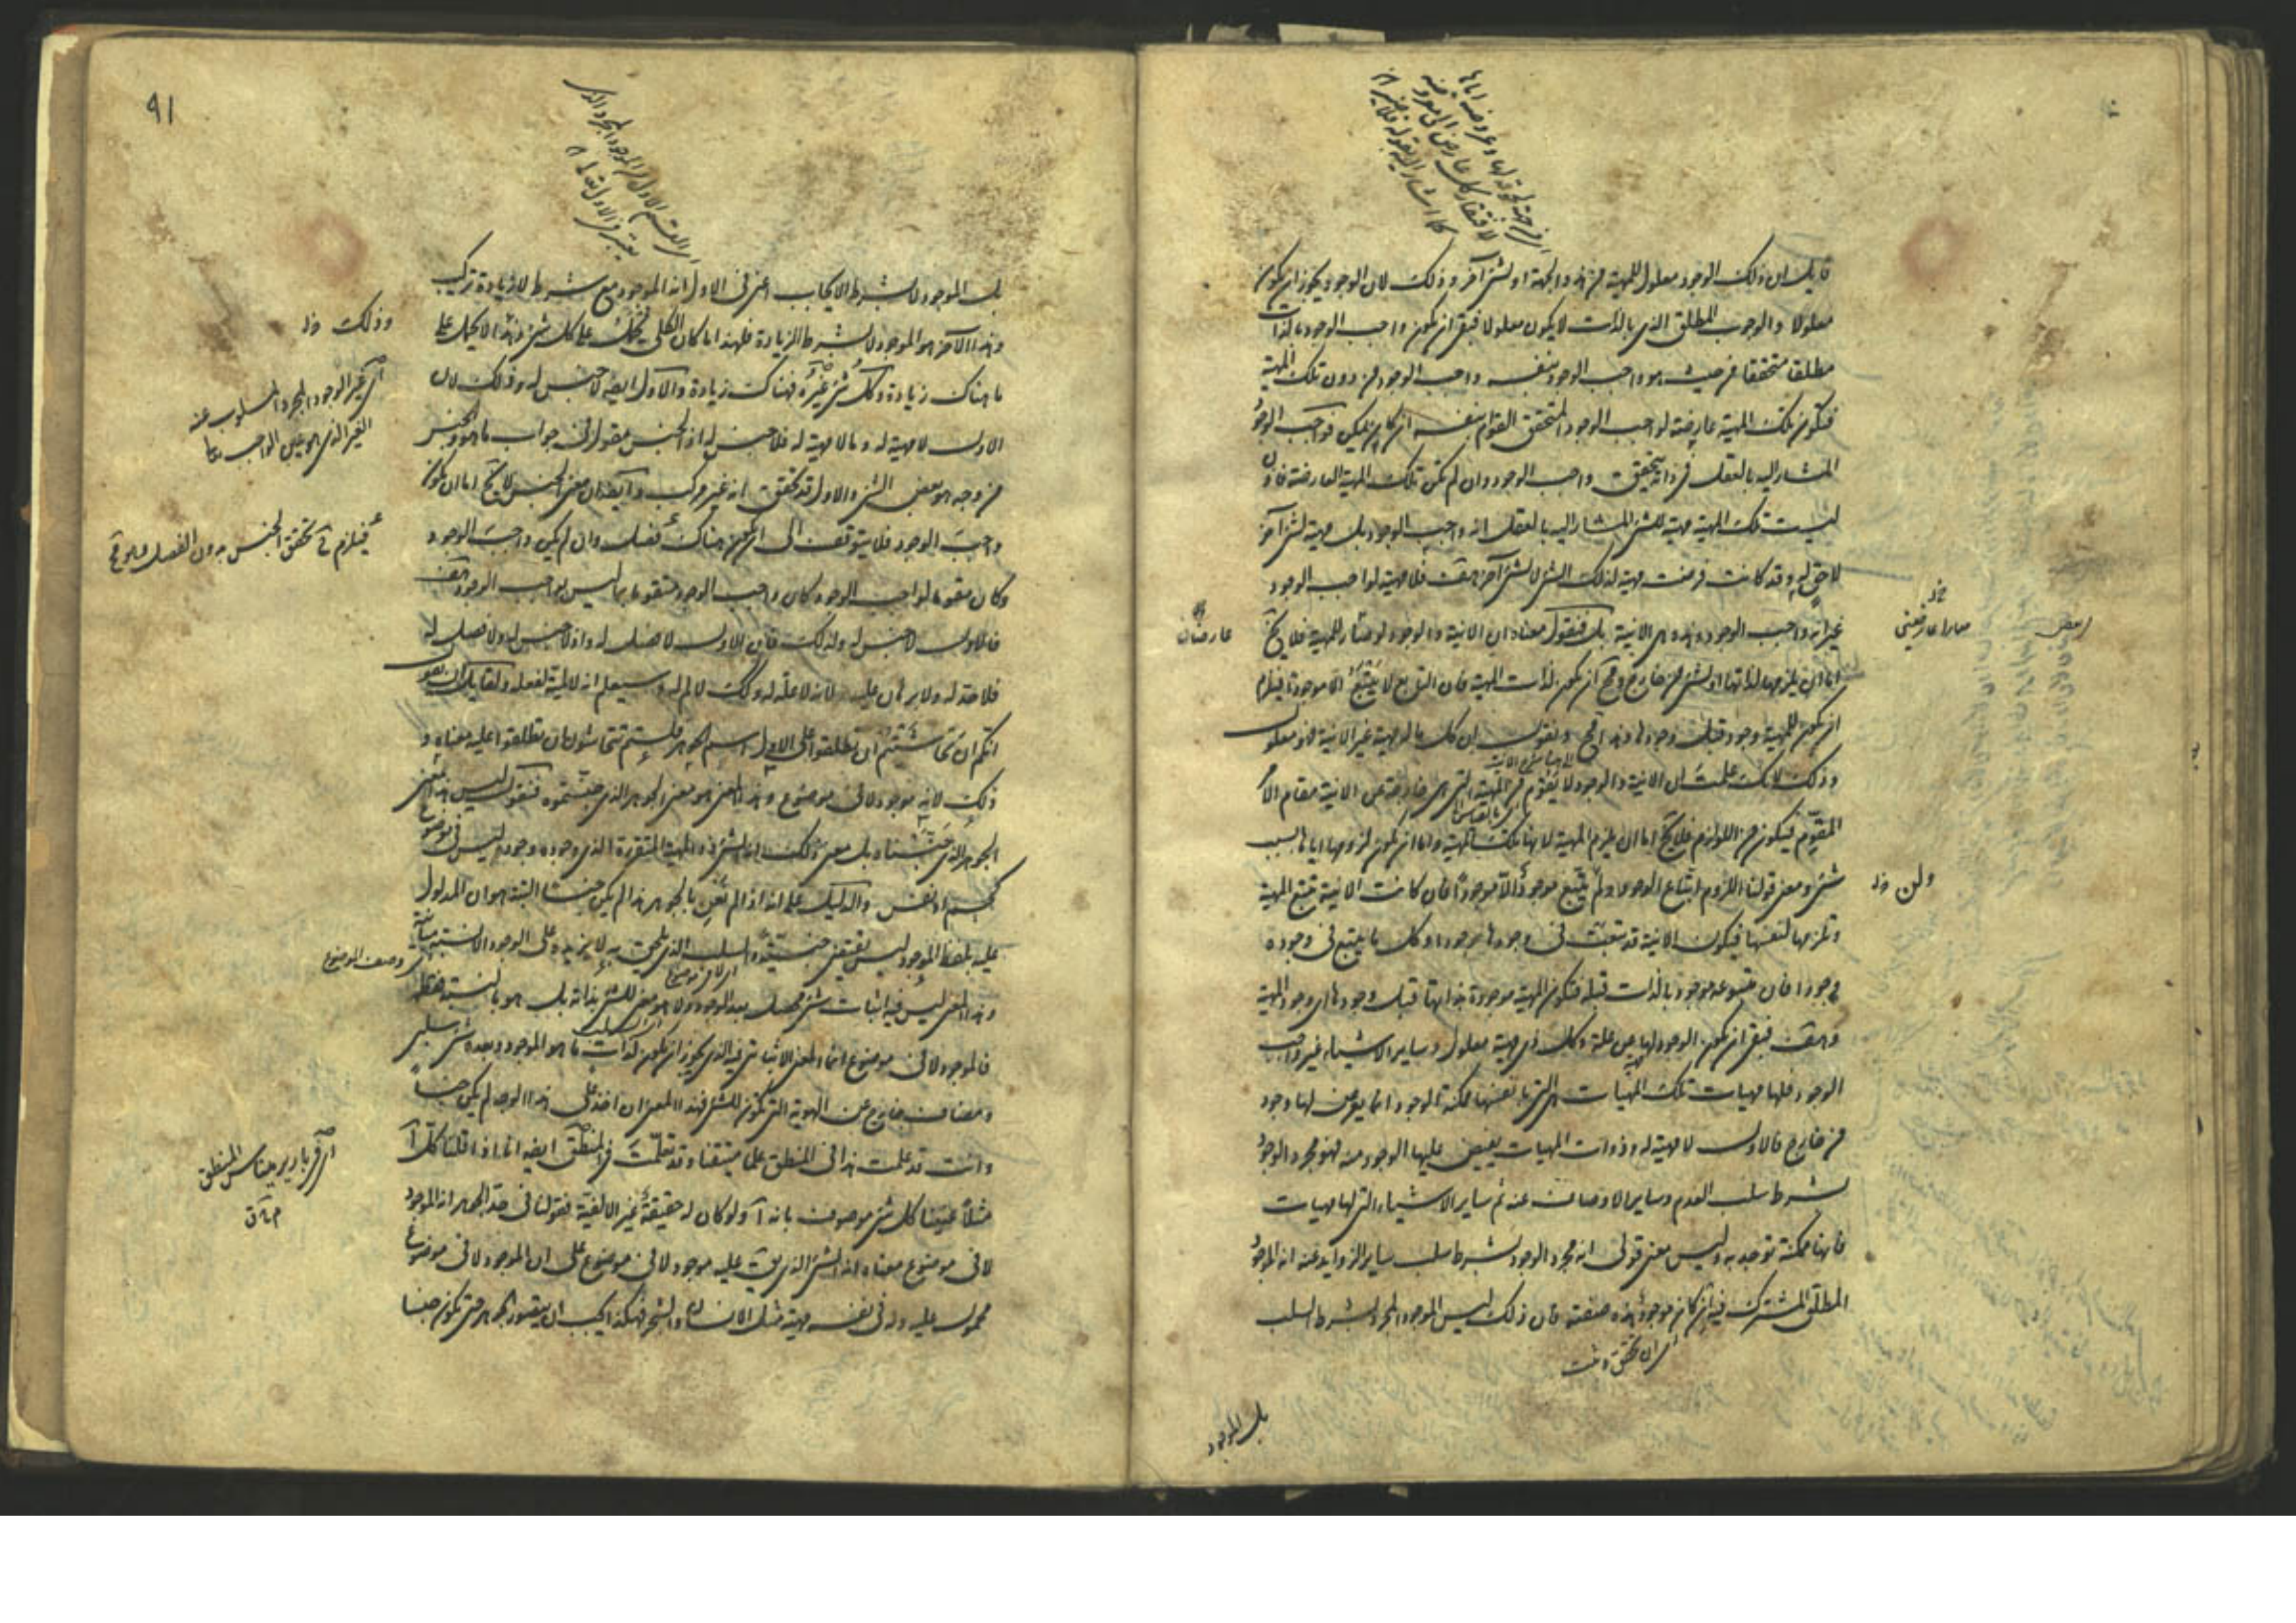 قايل ان ذلك الوجود معلول للمهية من هذه الجهة او لشئ آخر وذلك لان الوجود يجوز ان يكون
معلولا والوجوب المطلق الذى بالذات لا يكون معلولا فبقى ان يكون واجب الوجود بالذات
مطلقا متحققا من حيث هو واجب الوجود بنفسه واجب الوجود من دون تلك المهية
فتكون تلك المهية عارضة لواجب الوجود المتحقق القوام بنفسه ان كان يمكن فواجب الوجود
المشار اليه بالعقل فى ذاته يتحقق واجب الوجود وان لم تكن تلك المهية العارضة فاذن
ليست تلك المهية مهية للشئ المشار اليه بالعقل انه واجب الوجود بل مهية لشئ آخر
لاحق له وقد كانت فرضت مهية لذلك الشئ لا لشئ آخر هف فلا مهية لواجب الوجود
غير انه واجب الوجود وهذه هى الانية بل فنقول معناه ان الانية والوجود لو صارا للمهية فلا يخ
اما ان يلزمها لذاتها او لشئ من خارج ومح ان يكون لذات المهية فان التابع لا يتبع الا موجودا فيلزم
ان يكون للمهية وجود قبل وجودها وهذا مح ونقول ان كل ما له مهية غير الانية فهو معلول
وذلك لانك علمت ان الانية والوجود لا يقوم من المهية التى هى خارجة عن الانية مقام الامر
المقوم فيكون من اللوازم فلا يخ اما ان يلزم المهية لانها تلك المهية واما ان يكون لزومها اياها بسبب
شئ ومعنى قولنا اللزوم اتباع الوجود ولم يتبع موجود الا موجودا فان كانت الانية تتبع المهية
وتلزمها لنفسها فيكون الانية قد تبعت فى وجودها وجودا وكل ما يتبع فى وجوده
وجودا فان متبوعه موجود بالذات قبله فتكون المهية موجودة بذاتها قبل وجودها اى وجود المهية
وهف فبقى ان يكون الوجود لها عن علة وكل ذى مهية معلول وساير الاشياء غير واجب
الوجود فلها مهيات تلك المهيات هى التى بانفسها ممكنة الوجود انما يعرض لها وجود
من خارج فالاول لا مهية له وذوات المهيات يفيض عليها الوجود منه فهو مجرد الوجود
بشرط سلب العدم وساير الاوصاف عنه ثم ساير الاشياء التى لها مهيات
فانها ممكنة توجد به وليس معنى قولى انه مجرد الوجود بشرط سلب ساير الزوايد عنه انه الوجود
المطلق المشترك فيه ان كان موجود هذه صفته فان ذلك ليس الموجود المجرد بشرط السلب
بل الموجود
ولن خ
عارضان
٩١
بل الموجود لا بشرط الايجاب اعنى فى الاول انه الموجود مع شرط لا زيادة تركيب
وهذا الآخر هو الموجود لا بشرط الزيادة فلهذا ما كان الكلى يحمل على كل شئ وهذا لا يحمل على
ما هناك زيادة وكل شئ غيره فهناك زيادة والاول ايضا لا جنس له وذلك لان
الاول لا مهية له وما لا مهية له فلا جنس له اذ الجنس مقول فى جواب ما هو والجنس
من وجه هو بعض الشئ والاول قد تحقق انه غير مركب وايضا ان معنى الجنس لا يخ اما ان يكون
واجب الوجود فلا يتوقف الى ان يكون هناك فصل وان لم يكن واجب الوجود
وكان مقوما لواجب الوجود كان واجب الوجود متقوما بما ليس بواجب الوجود هف
فالاول لا جنس له ولذلك فان الاول لا فصل له واذ لا جنس له ولا فصل له
فلا حد له ولا برهان عليه لانه لا علة له وكذلك لا لم له وسيعلم انه لا لمية لفعله ولقايل ان يقول
انكم ان تحاشيتم ان تطلقوا على الاول اسم الجوهر فلستم تتحاشون ان تطلقوا عليه معناه و
ذلك لانه موجود لا فى موضوع وهذا المعنى هو معنى الجوهر الذى جنستموه فنقول ليس هذا معنى
الجوهر الذى جنسناه بل معنى ذلك انه الشئ ذو المهية المتقررة الذى وجوده وجود ليس فى موضوع
كجسم او نفس والدليل على انه اذا لم نعن بالجوهر هذا لم يكن جنسا البتة هو ان المدلول
عليه بلفظ الموجود ليس يقتضى جنسيته والسلب الذى يلحق به لا يزيده على الوجود الا نسبة مباينة
وهذا المعنى ليس فيه اثبات شئ محصل بعد الوجود ولا هو معنى للشئ بذاته بل هو بالنسبة فقط
فالموجود لا فى موضوع انما المعنى الاثباتى فيه الذى يجوز ان يكون لذات ما هو الموجود وبعده شئ سلبى
ومضاف خارج عن الهوية التى تكون للشئ فهذا المعنى ان اخذ على هذا الوجه لم يكن جنسا
وانت قد علمت هذا فى المنطق علما متقنا وقد علمت فى المنطق ايضا انا اذا قلنا كل آ
مثلا عنينا كل شئ موصوف بانه آ ولو كان له حقيقة غير الالفية فقولنا فى حد الجوهر انه الموجود
لا فى موضوع معناه انه الشئ الذى يق عليه موجود لا فى موضوع على ان الموجود لا فى موضوع
محمول عليه وله فى نفسه مهية مثل الانسان والشجر فهكذا يجب ان يتصور الجوهر حتى يكون جنسا
وذلك خ
اى غير الوجود المجرد المسلوب عنه
الغير الذى هو عين الواجب تعا
فيلزم ح تحقق الجنس بدون الفصل وهو مح
وصف الموضوع